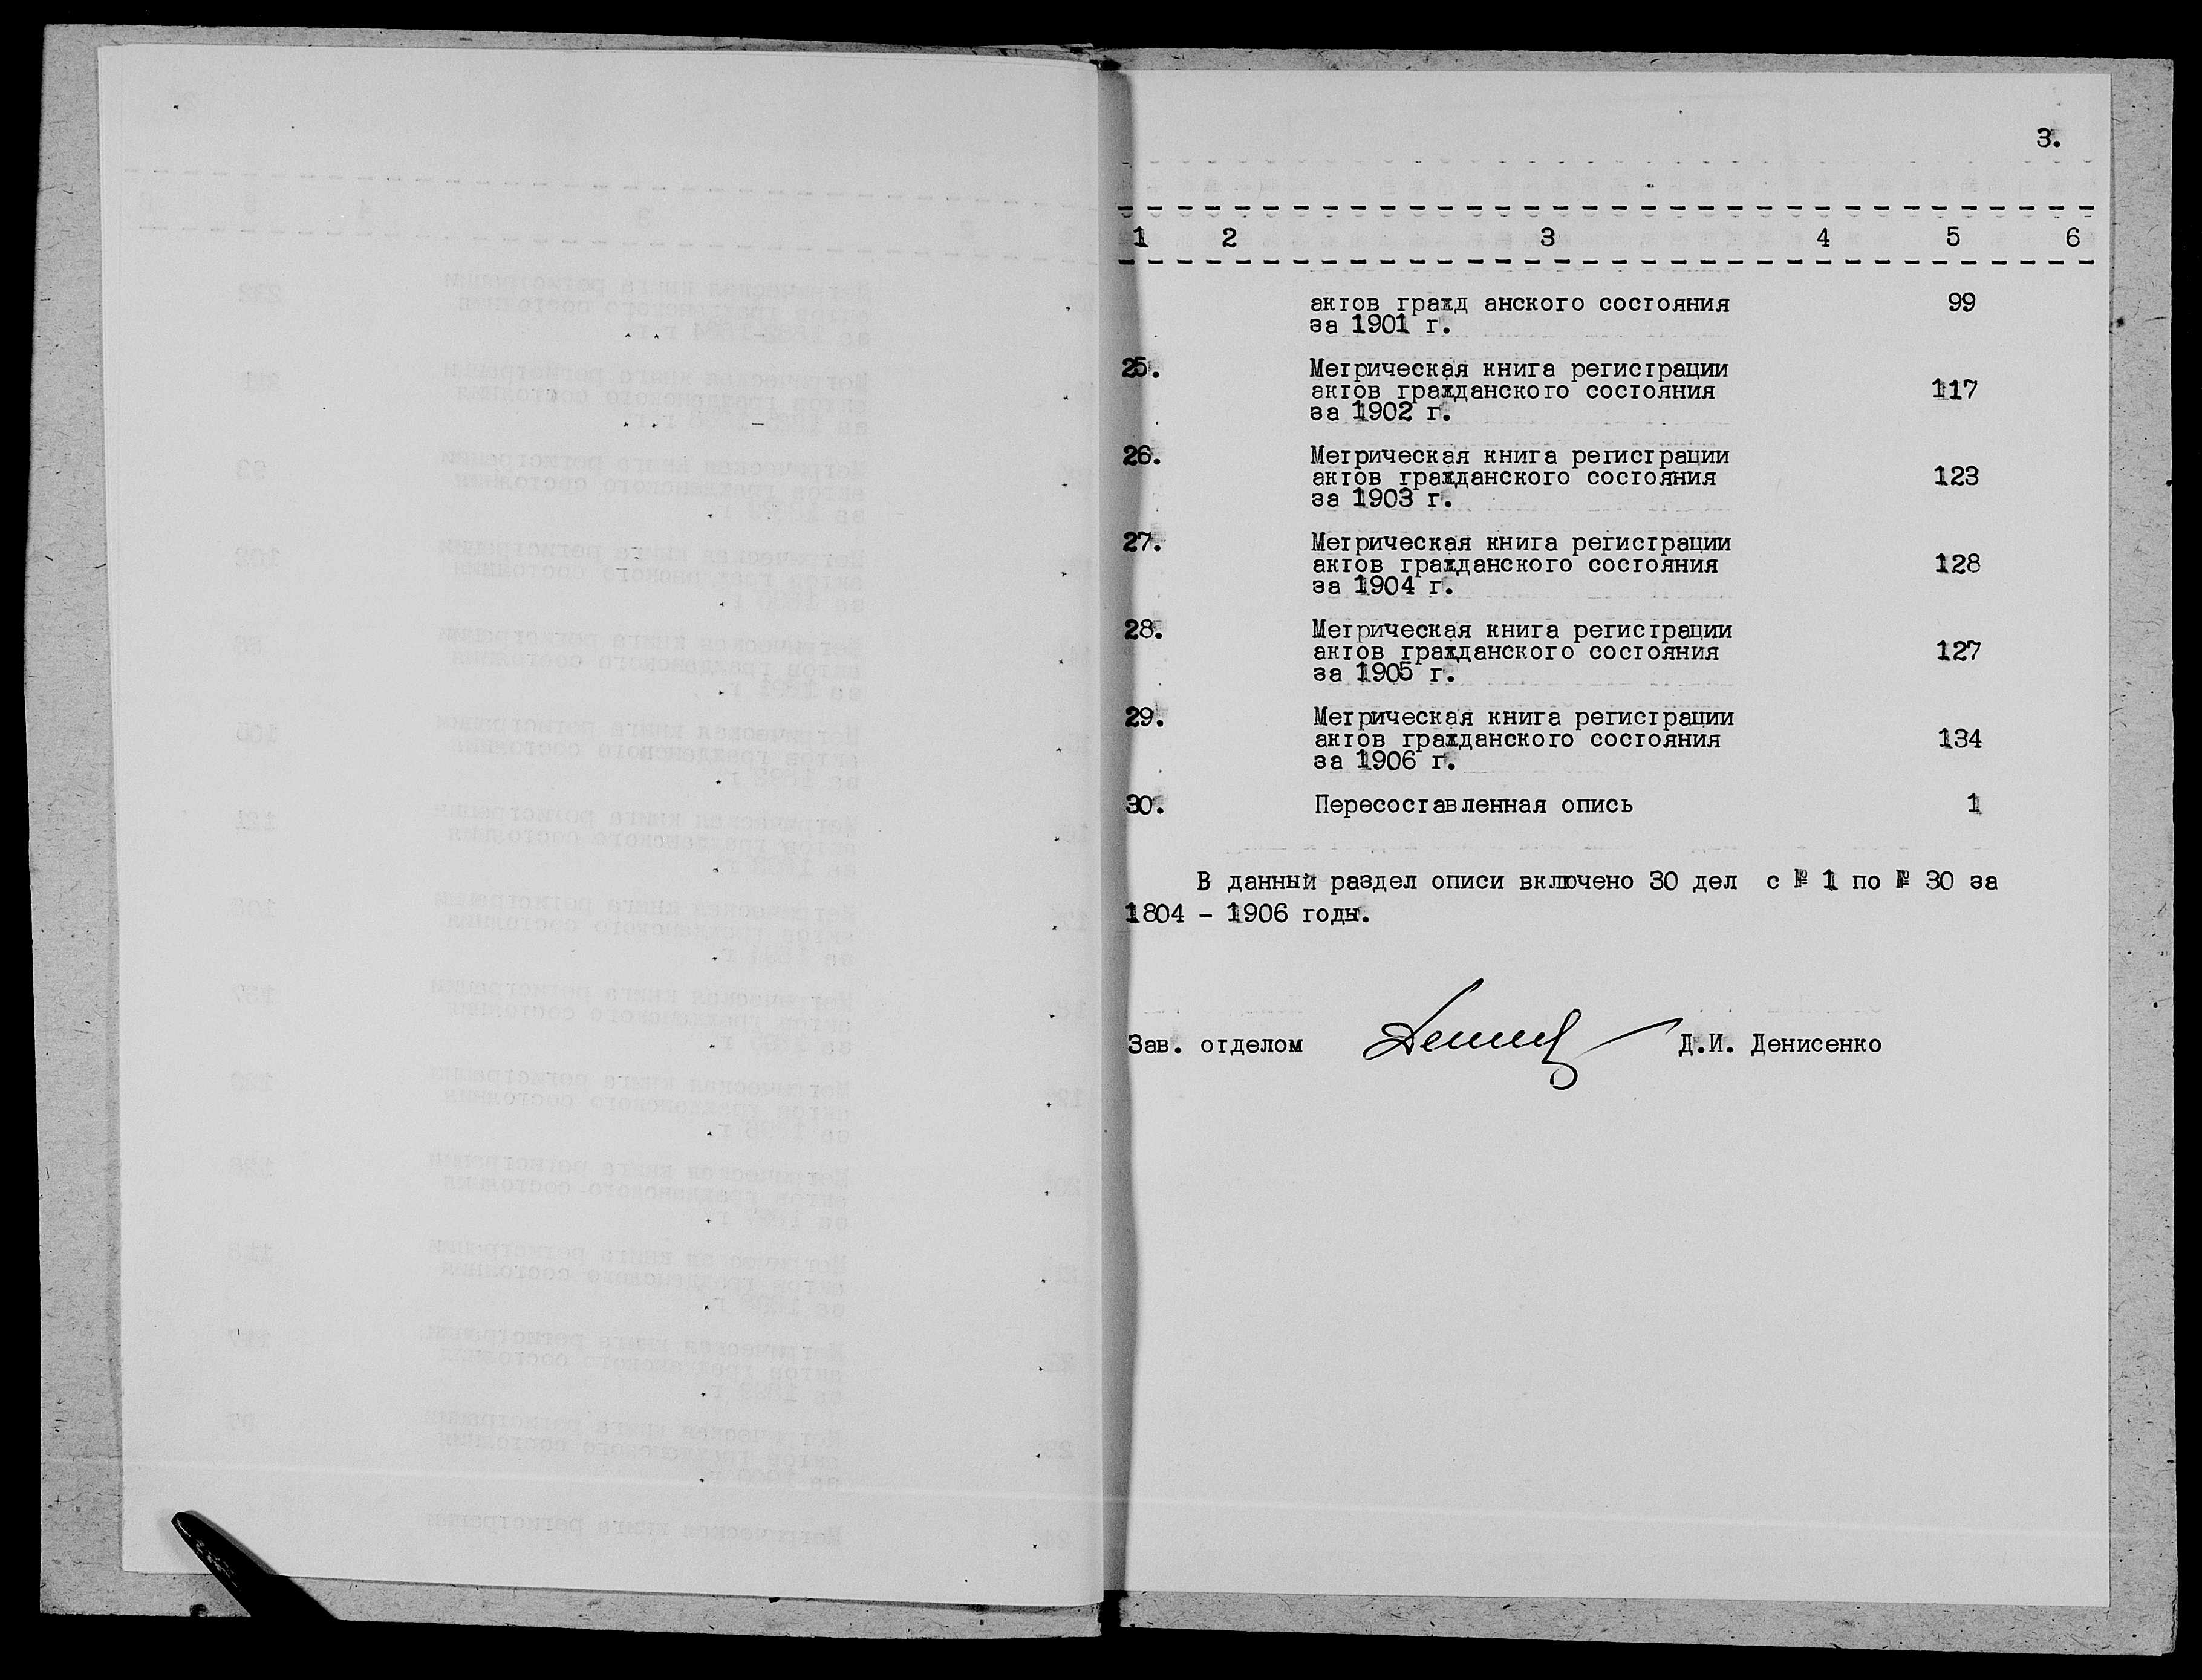 3.
1 2 3 4 5 6
актов гражд анского состояния 99
за 1901 г.
25. Метрическая книга регистрации
актов гражданского состояния 117
за 1902 г.
26. Метрическая книга регистрации
актов гражданского состояния 123
за 1903 г.
27. Метрическая книга регистрации
актов гражданского состояния 128
за 1904 г.
28. Метрическая книга регистрации
актов гражданского состояния 127
за 1905 г.
29. Метрическая книга регистрации
актов гражданского состояния 134
за 1906 г.
30. Пересоставленная опись 1
В данный раздел описи включено 30 дел с № 1 по № 30 за
1804 - 1906 годы.
Зав. отделом Д.И. Денисенко